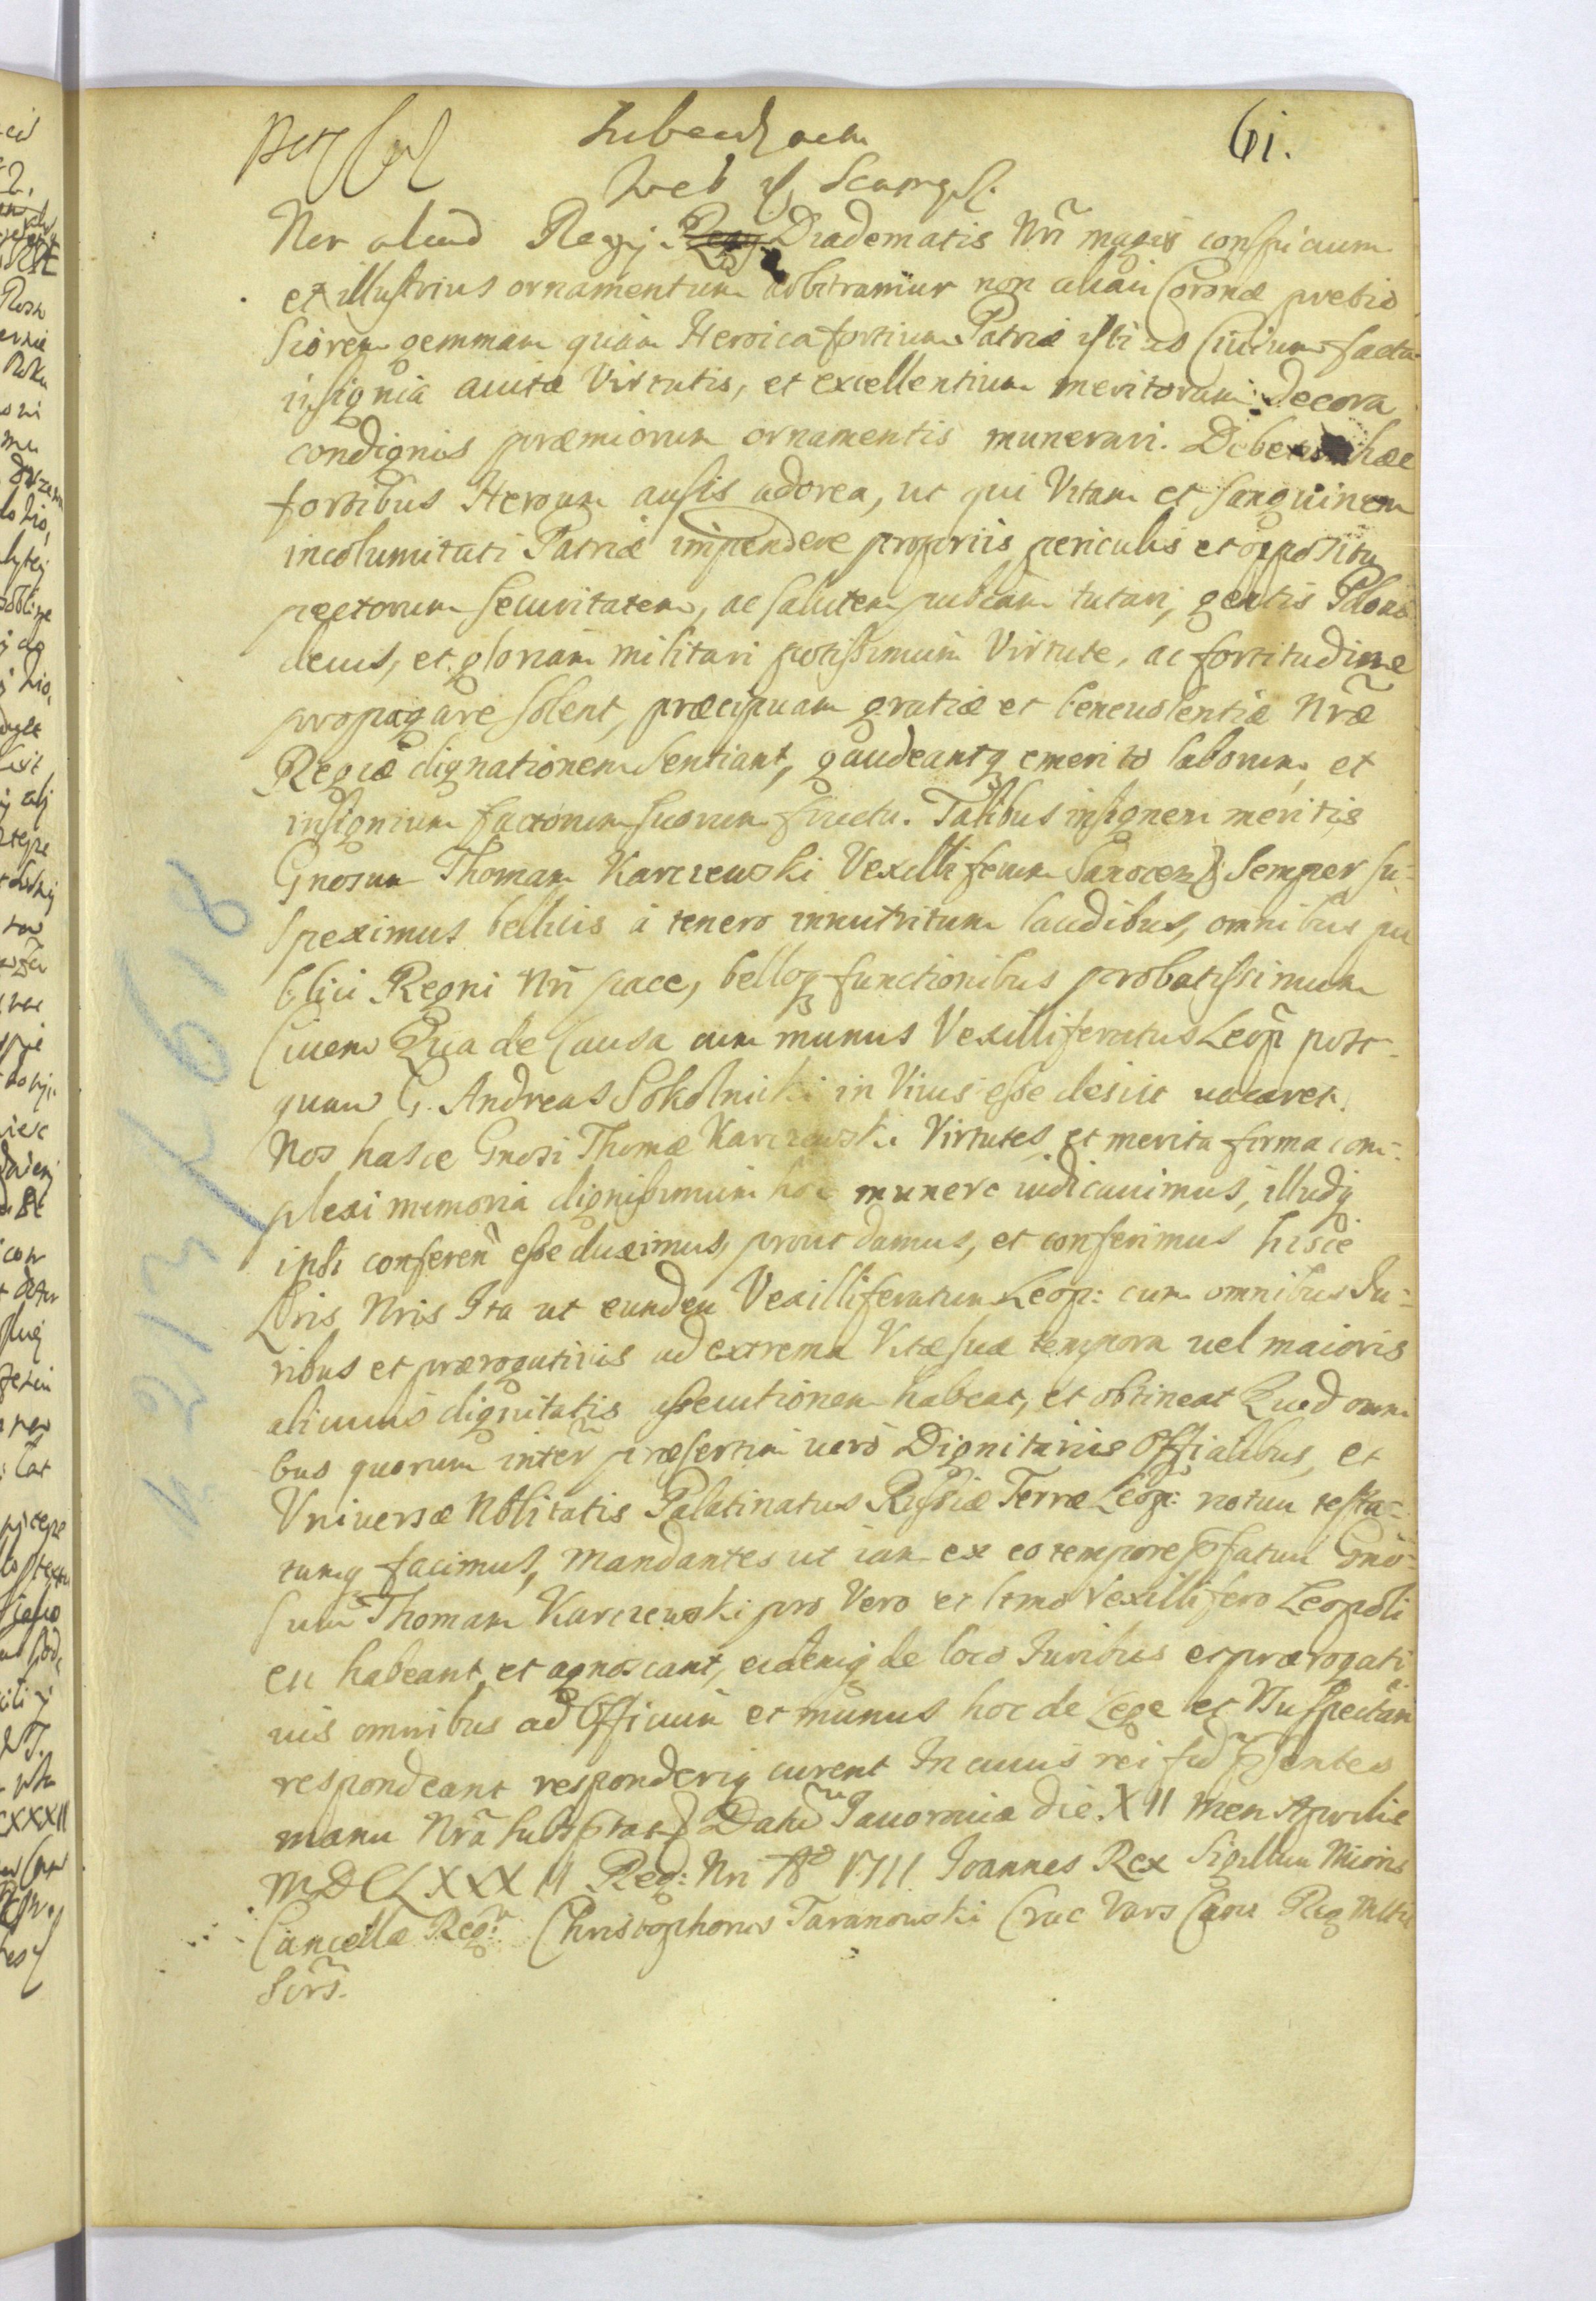 61.
Nec aliud Regij Regij Diadematis Nrī magis conspicuum
et illustrius ornamentum arbitramur non aliam Coronæ pretio
siorem gemmam quàm Heroica fortium Patriæ istius Ciuium facta
insignia auitæ Virtutis, et excellentium meritorum Decora
condignis præmiorum ornamentis munerari. Debetur hæc
fortibus Heroum ausis adorea, ut qui Vitam et sanguinem
incolumitati Patriæ impendere propriis periculis et oppositu
pectorum securitatem, ac salutem publicam tutari, gentis Polonæ
decus, et gloriam militari potissimum Virtute, ac fortitudine
propagare solent, præcipuam gratiæ et beneuolentiæ Nrǣ
Regiæ dignationem sentiant, gaudeantq emerito laborum, et
insignium factorum suorum fructu. Talibus insignem meritis
Gnosum Thomam Karczewski Vexilliferum Sanocen. Semper su=
speximus bellicis à tenero innutritum laudibus, omnibus pu
blici Regni Nrī pace, belloq functionibus probatissimum
Ciuem Qua de Causa cum munus Vexilliferatus Leop. post=
quam G. Andreas Sokolnicki in Viuis esse desiit uacaret.
Nos hasce Gnosi Thomæ Karczewski Virtutes et merita firma com=
plexi memoria dignissimum hoc munere iudicauimus, illudq
ipsi conferen esse duximus, prout damus, et conferimus hisce
Lris Nris Ita ut eundem Vexilliferatum Leop: cum omnibus Iu=
ribus et prærogatiuis ad extrema Vitæ suæ tempora uel maioris
alicuius dignitatis assecutionem habeat, et obtineat Quod omni
bus quorum inter̃ præsertim uerò Dignitariis Offialibus, et
Vniversæ Nblitatis Palatinatus Russiæ Terræ Leop: notum testa=
tumq facimus, Mandantes ut iam ex eo tempore pfatum Gno=
sum Thomam Karczewski pro Vero et ltmo Vexillifero Leopoli
en habeant, et agnoscant, eidemq de loco Iuribus et prærogati
uis omnibus ad Officium et munus hoc de Lege et Vsu spectan
respondeant responderiq curent In cuius rei fid psentes
manu Nrā Datū Iauoroviæ die XII Men Aprilis
MDCLXXXII Reg: Nri Ao VIII Joannes Rex Sigillum Minoris
Cancellæ Reg: Christophorus Taranowski Crac Vars Reg Mttis
Secrs.